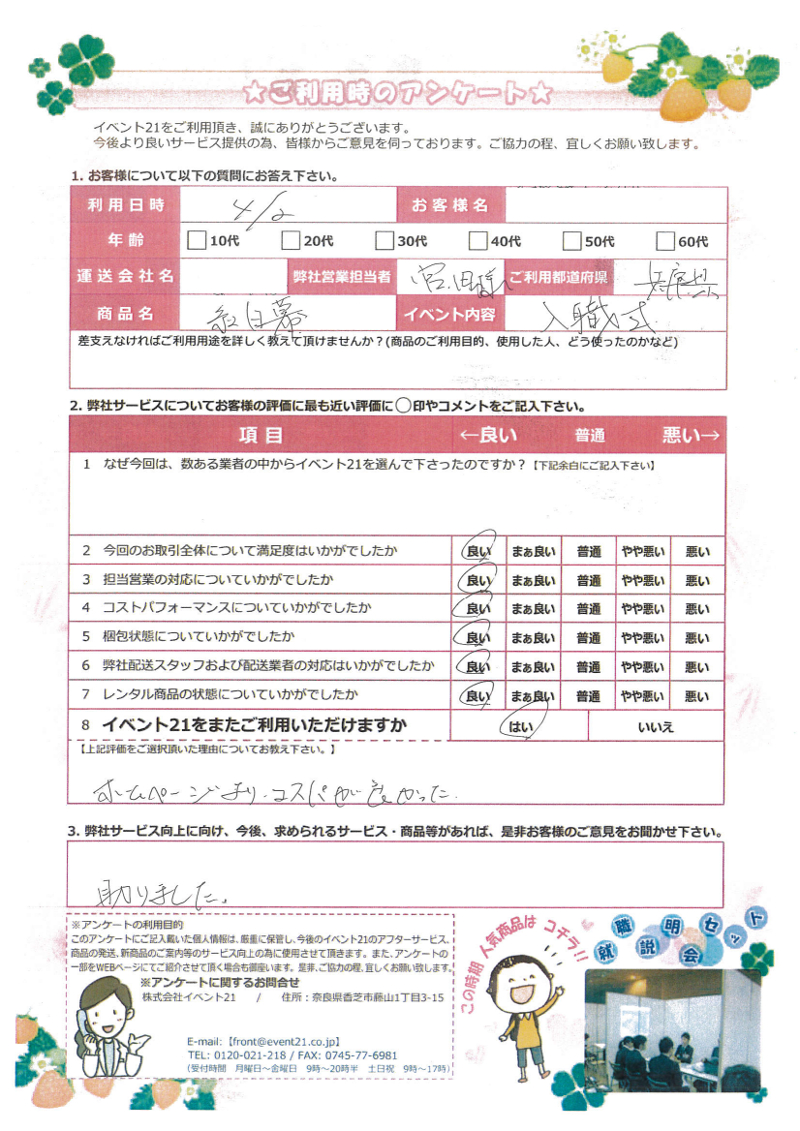 ★ご利用時のアンケート★
イベント21をご利用頂き、誠にありがとうございます。
今後より良いサービス提供の為、皆様からご意見を伺っております。ご協力の程、宜しくお願い致します。
1. お客様について以下の質問にお答え下さい。
利用日時 4/2 お客様名
年齢 10代 20代 30代 40代 50代 60代
運送会社名 弊社営業担当者 宮田様 ご利用都道府県 兵庫県
商品名 紅白幕 イベント内容 入職式
差支えなければご利用用途を詳しく教えて頂けませんか？(商品のご利用目的、使用した人、どう使ったのかなど)
2. 弊社サービスについてお客様の評価に最も近い評価に◯印やコメントをご記入下さい。
項目 ←良い 普通 悪い→
1 なぜ今回は、数ある業者の中からイベント21を選んで下さったのですか？【下記余白にご記入下さい】
2 今回のお取引全体について満足度はいかがでしたか 良い まぁ良い 普通 やや悪い 悪い
3 担当営業の対応についていかがでしたか 良い まぁ良い 普通 やや悪い 悪い
4 コストパフォーマンスについていかがでしたか 良い まぁ良い 普通 やや悪い 悪い
5 梱包状態についていかがでしたか 良い まぁ良い 普通 やや悪い 悪い
6 弊社配送スタッフおよび配送業者の対応はいかがでしたか 良い まぁ良い 普通 やや悪い 悪い
7 レンタル商品の状態についていかがでしたか 良い まぁ良い 普通 やや悪い 悪い
8 イベント21をまたご利用いただけますか はい いいえ
【上記評価をご選択頂いた理由についてお教え下さい。】
ホームページより・コスパが良かった.
3. 弊社サービス向上に向け、今後、求められるサービス・商品等があれば、是非お客様のご意見をお聞かせ下さい。
助りました。
※アンケートの利用目的
このアンケートにご記入戴いた個人情報は、厳重に保管し、今後のイベント21のアフターサービス、
商品の発送、新商品のご案内等のサービス向上の為に使用させて頂きます。また、アンケートの
一部をWEBページにてご紹介させて頂く場合も御座います。是非、ご協力の程、宜しくお願い致します。
※アンケートに関するお問合せ
株式会社イベント21 / 住所：奈良県香芝市藤山1丁目3-15
E-mail:【front@event21.co.jp】
TEL: 0120-021-218 / FAX: 0745-77-6981
(受付時間 月曜日～金曜日 9時～20時半 土日祝 9時～17時)
この時期 人気商品は コチラ!!
就職説明会セット